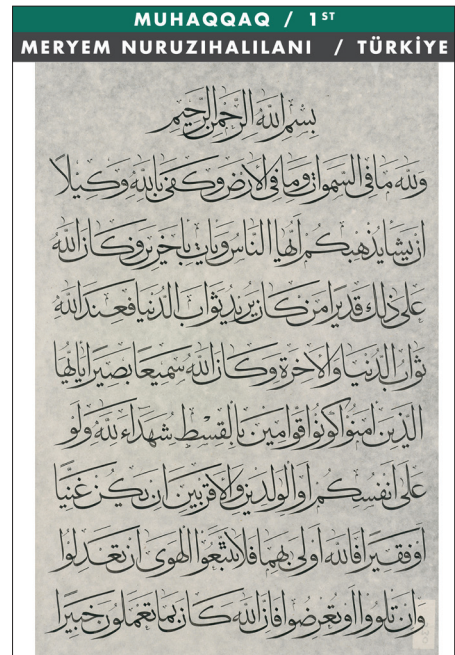 MUHAQQAQ / 1ST
MERYEM NURUZIHALILANI / TÜRKİYE
بسم الله الرحمن الرحيم
ولله ما في السموات وما في الارض وكفى بالله وكيلا
ان يشا يذهبكم ايها الناس ويات باخرين وكان الله
على ذلك قديرا من كان يريد ثواب الدنيا فعند الله
ثواب الدنيا والاخرة وكان الله سميعا بصيرا يا ايها
الذين امنوا كونوا قوامين بالقسط شهداء لله ولو
على انفسكم او الوالدين والاقربين ان يكن غنيا
او فقيرا فالله اولى بهما فلا تتبعوا الهوى ان تعدلوا
وان تلووا او تعرضوا فان الله كان بما تعملون خبيرا